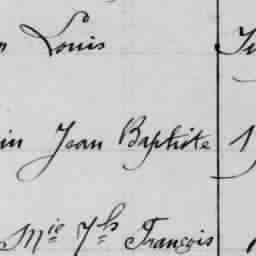 Louis
in Jean Baptiste
Mie Jh François